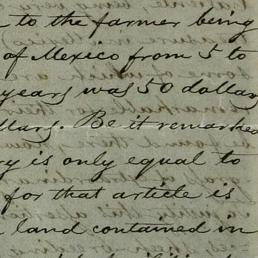 to the farmer being
of Mexico from 5 to
years was 50 dollars
llars. Be it remarked
ry is only equal to
for that article is
land contained in